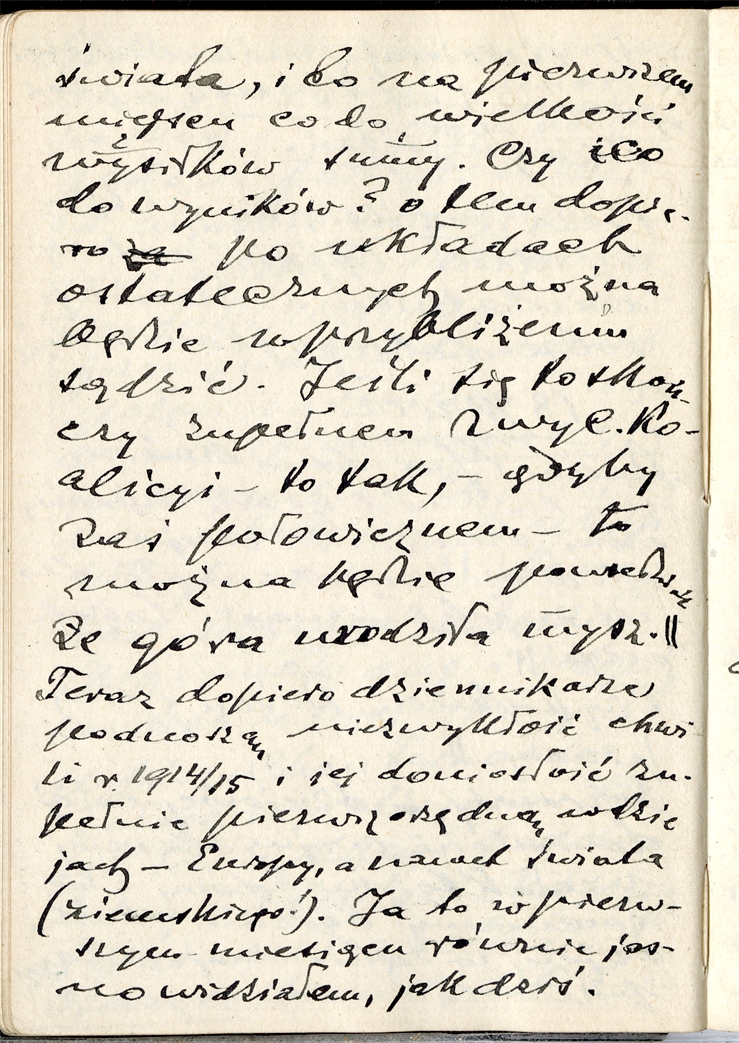 świata, i to na pierwszem
miejscu co do wielkości
wysiłków i sumy. Czy i co
do wyników? o tem dopie-
ro za po układach
ostatecznych można
będzie w przybliżeniu
sądzić. Jeśli się to skoń-
czy zupełnem zwyc. Ko-
alicyi – to tak, – gdyby
zaś połowicznem – to
można będzie powiedzieć
że góra urodziła mysz. ||
Teraz dopiero dziennikarze
podnoszą niezwykłość chwi-
li r. 1914/15 i jej doniosłość zu-
pełnie pierwszorzędną w dzie
jach – Europy, a nawet świata
(ziemskiego!). Ja to w pierw-
szym miesiącu równie jas-
no widziałem, jak dziś.